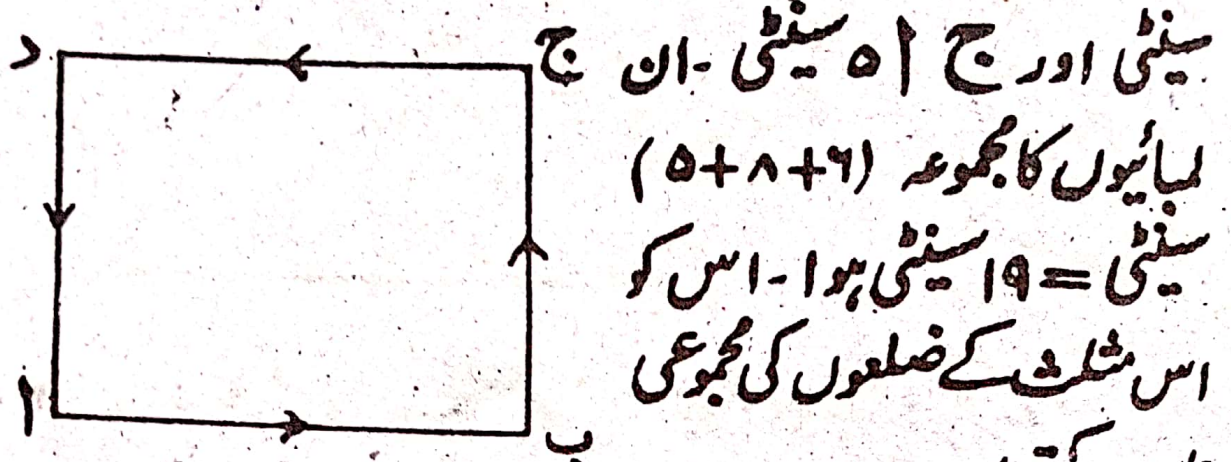 سینٹی اور ج ا ۵ سینٹی - ان
لمبائیوں کا مجموعہ (۶+۸+۵)
سینٹی = ۱۹ سینٹی ہوا - اس کو
اس مثلث کے ضلعوں کی مجموعی
د
ج
ا
ب